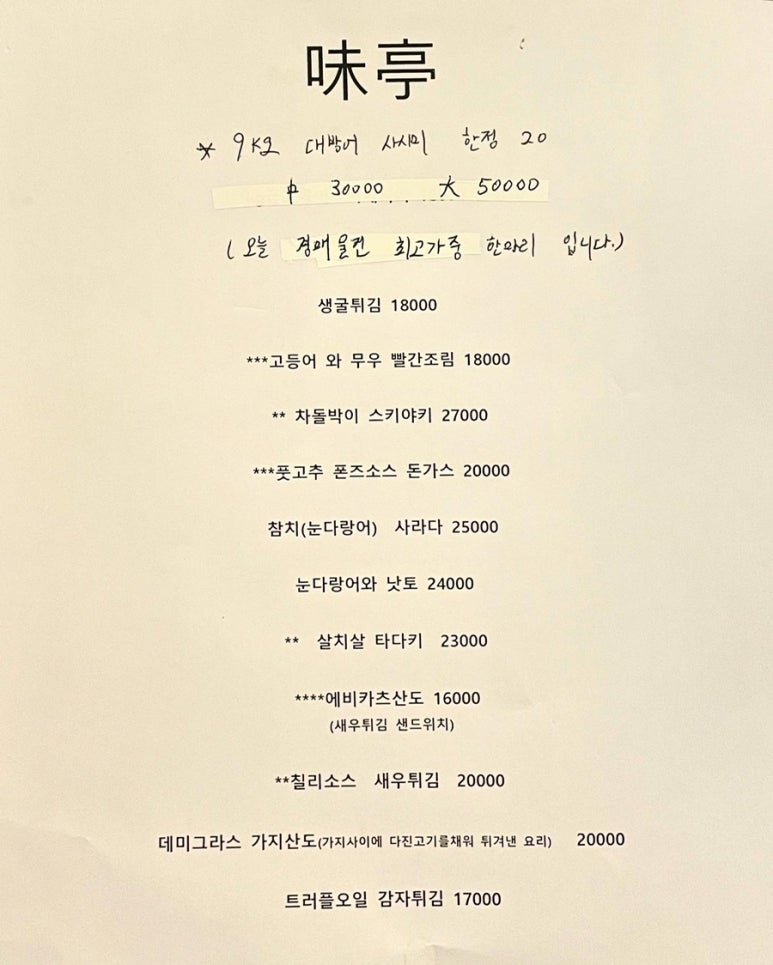 味亭
* 9Kg 대방어 사시미 한정 20
中 30000 大 50000
(오늘 경매물건 최고가중 한마리 입니다.)
생굴튀김 18000
***고등어 와 무우 빨간조림 18000
** 차돌박이 스키야키 27000
***풋고추 폰즈소스 돈가스 20000
참치(눈다랑어) 사라다 25000
눈다랑어와 낫토 24000
** 살치살 타다키 23000
****에비카츠산도 16000
(새우튀김 샌드위치)
**칠리소스 새우튀김 20000
데미그라스 가지산도(가지사이에 다진고기를채워 튀겨낸 요리) 20000
트러플오일 감자튀김 17000